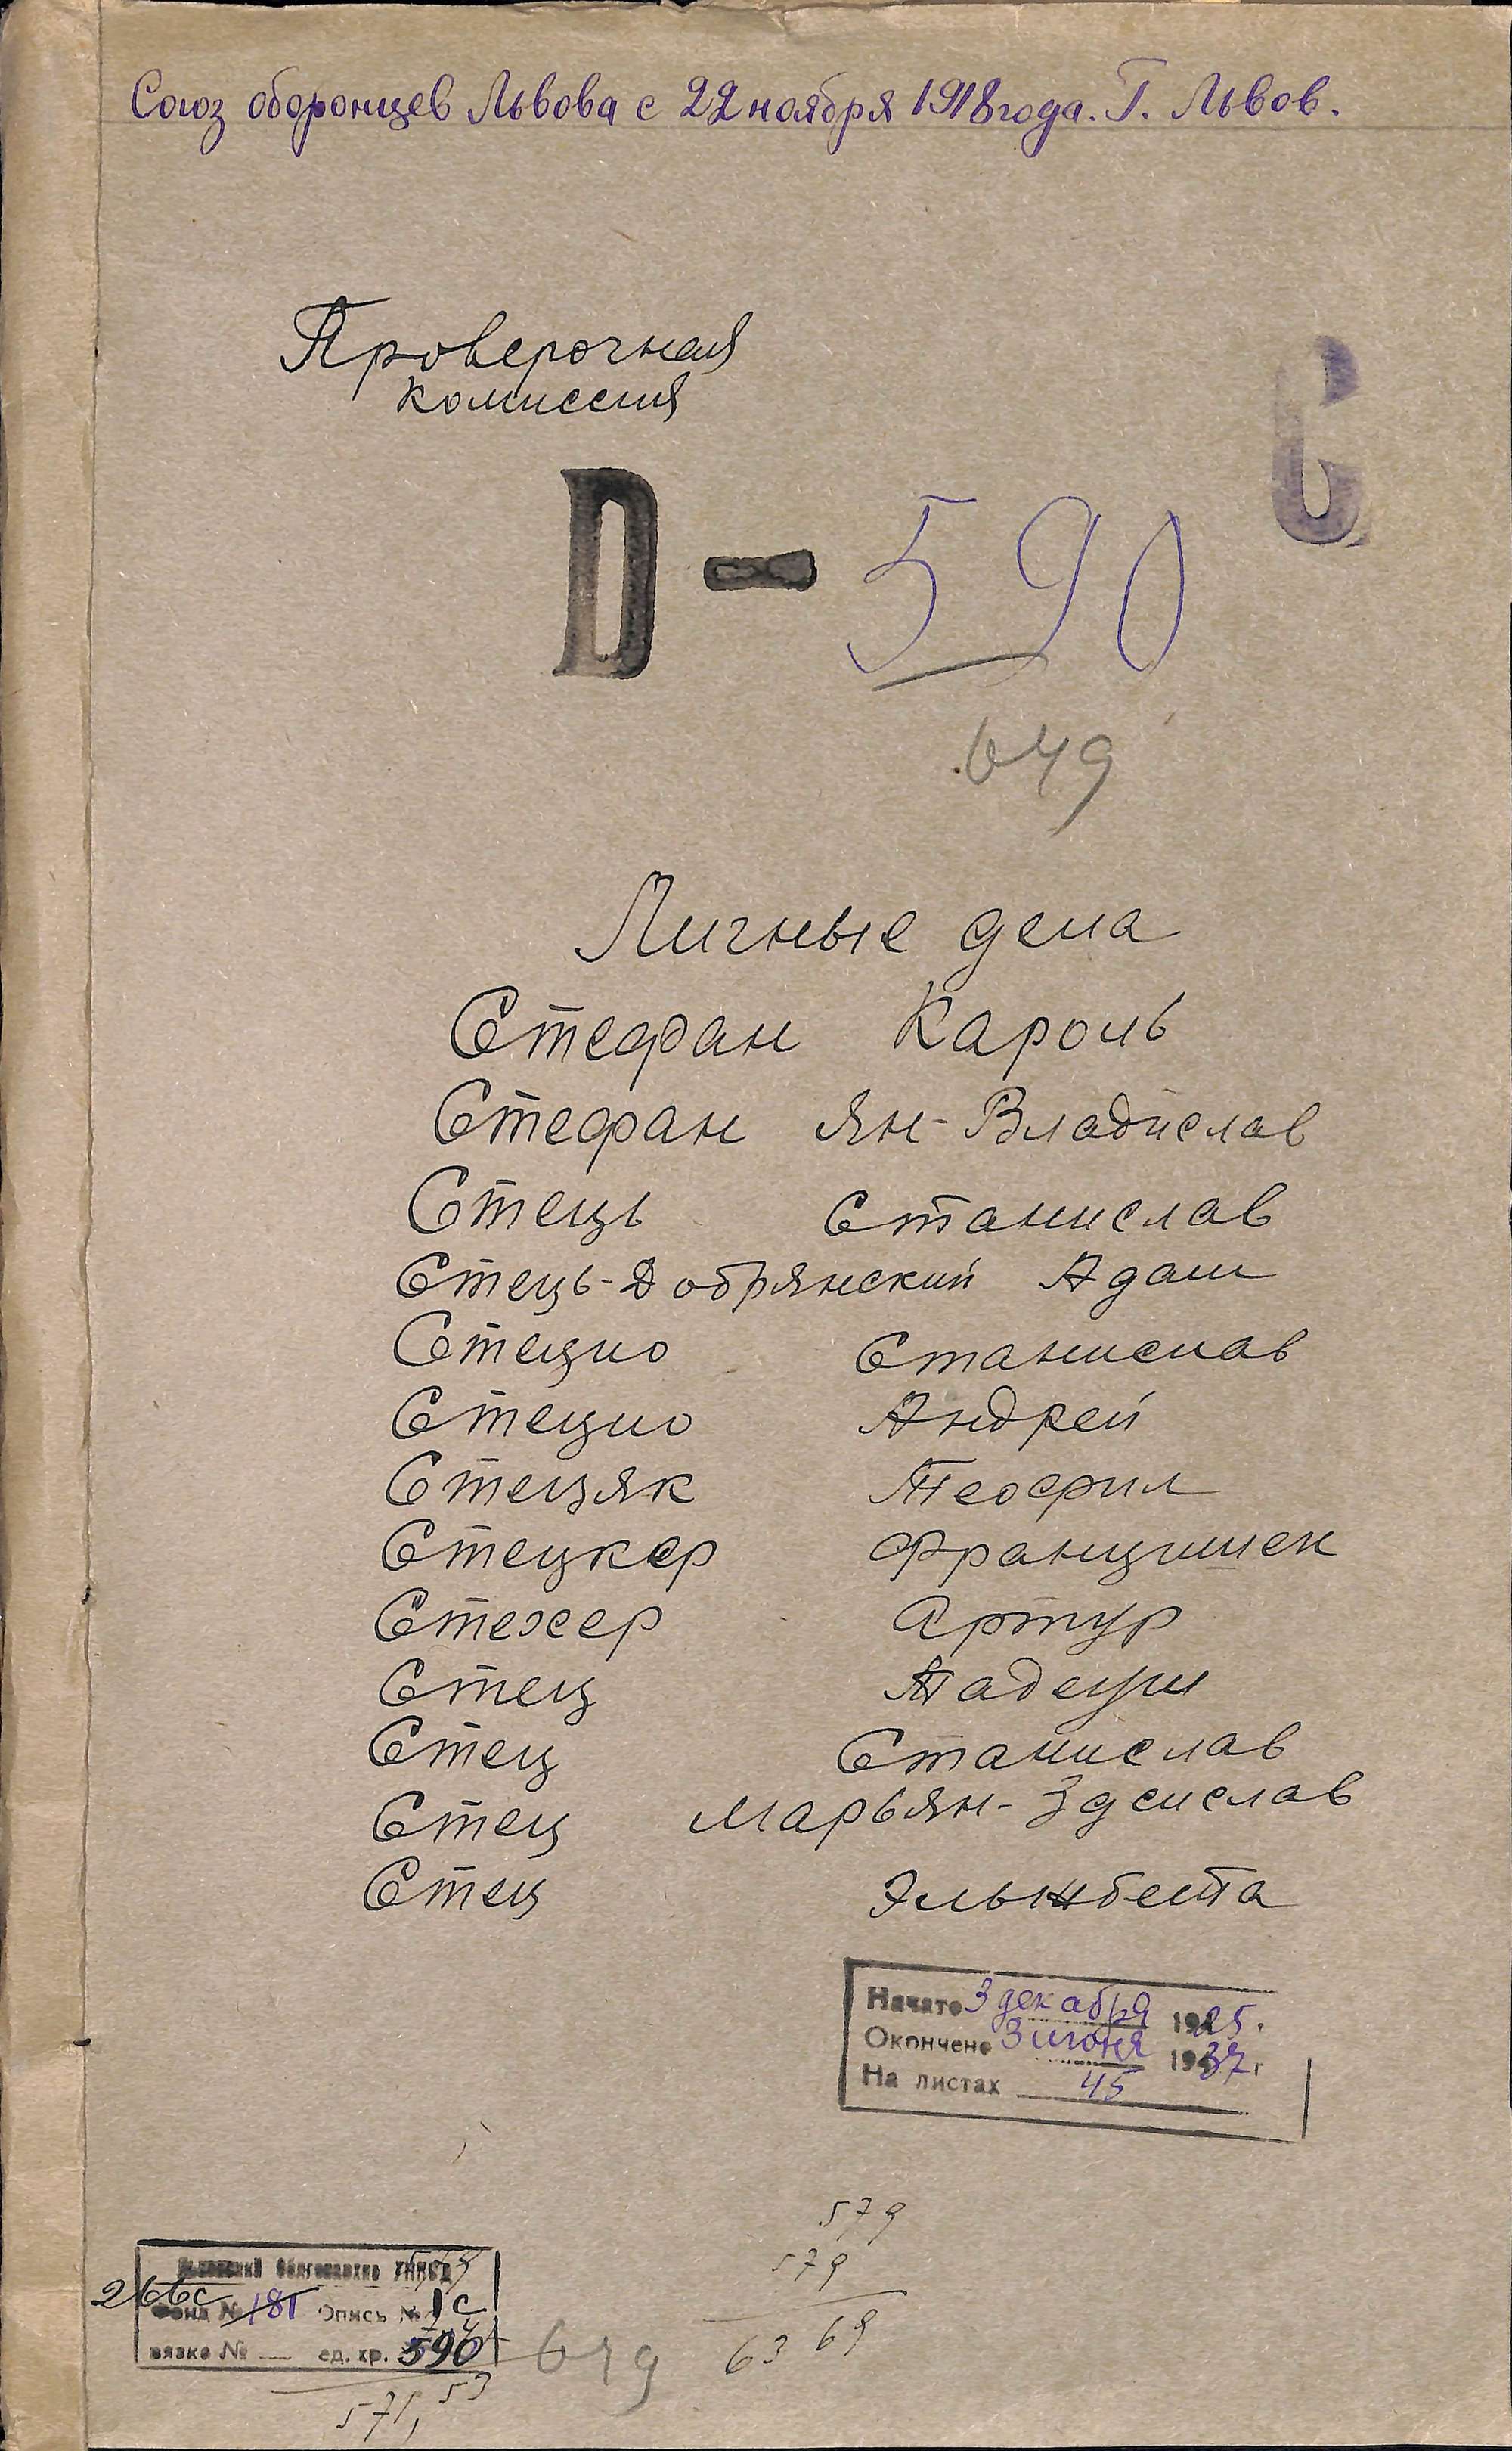 Союз оборонцев Львова с 22 ноября 1918 года. Г. Львов.
Проверочная
комиссия
С
D - 590
649
Личные дела
Стефан Кароль
Стефан Ян-Владислав
Стець Станислав
Стець-Добрянский Адам
Стецио Станислав
Стецио Андрей
Стецяк Теофил
Стецкер Францишек
Стехер Артур
Стец Тадеуш
Стец Станислав
Стец Марьян-Здислав
Стец Эльжбета
Начато 3 декабря 1925.
Окончено 3 июня 1937 г
На листах 45
579
579
Львовский облгосархив УНКВД
266с
Фонд № 181 Опись № 1с
вязка № — ед. хр. 590
649
63 69
571, 53